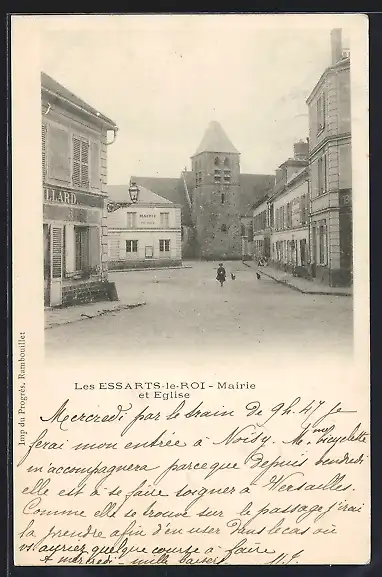 LLARD
MAIRIE
Imp du Progrès, Rambouillet
Les ESSARTS-le-ROI - Mairie
et Eglise
Mercredi par le train de 9h.47 je
ferai mon entrée à Noisy. Ma bicyclette
m'accompagnera parce que depuis vendredi
elle est à se faire soigner à Versailles.
Comme elle se trouve sur le passage j'irai
la prendre afin d'en user dans le cas où
vs auriez quelque course à faire
A mercredi - mille baisers